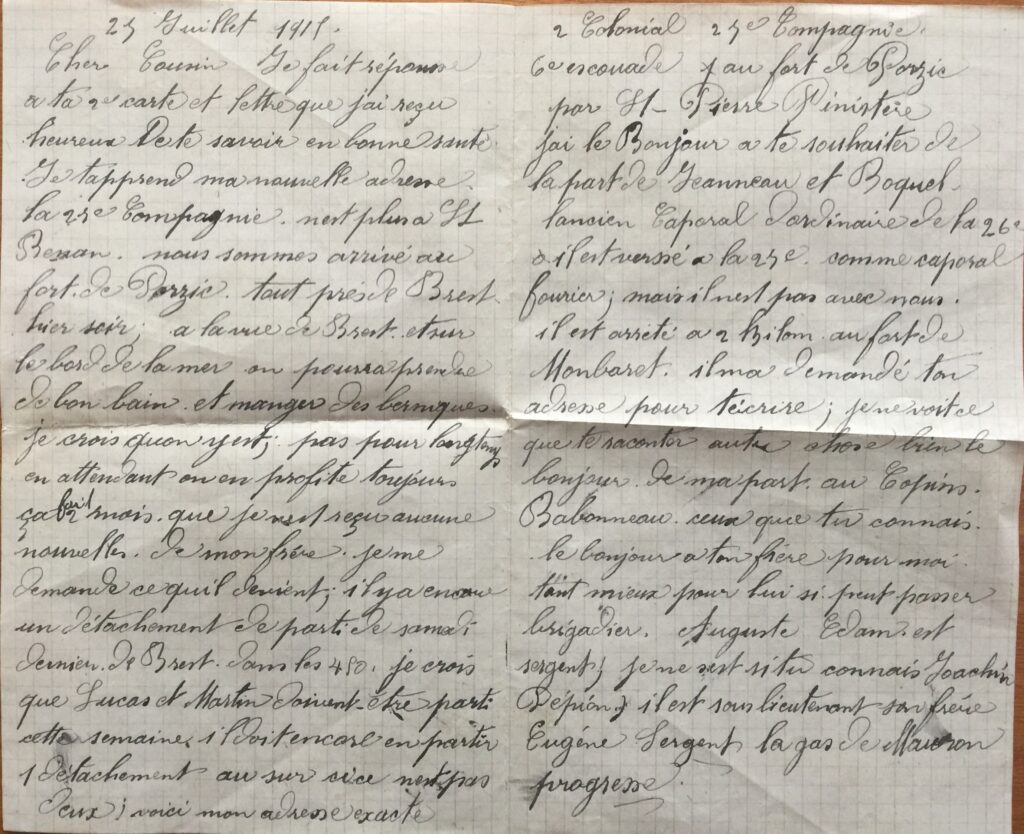 25 Juillet 1915.
Cher Cousin Je fait réponse
a ta 2e carte et lettre que jai reçu
heureux De te savoir en bonne santé
Je tapprend ma nouvelle adresse.
la 25e Compagnie. nest plus a St
Renan. nous sommes arrivé au
fort. de Porzic. tout près de Brest.
hier soir; a la vue de Brest. et sur
le bord de la mer on pourra prendre
de bon bain. et manger des berniques.
je crois quon y est; pas pour longtemps
en attendant on en profite toujours
ça fait 2 mois. que je reçu aucune
nouvelles. de mon frére. je me
demande ce quil devient; il y a encore
un détachement de parti de samdi
dernier. de Brest. dans les 450. je crois
que Lucas et Martin doivent-être parti
cette semaine, il doit encore en partir
1 détachement au sur ci ce nest pas
deux; voici mon adresse exacte
2 Colonial 25e Compagnie.
6e escouade au fort de Porzic
par St-Pierre Finistère
jai le Bonjour a te souhaiter de
la part de Jeanneau et Boquel.
lancien Caporal dordinaire de la 26e
il est versé a la 25e. comme caporal
fourier; mais il nest pas avec nous.
il est arrété a 2 kilom. au fort de
Monbaret. il ma demandé ton
adresse pour técrire; je ne voit ce
que te raconter autre chose bien le
bonjour. de ma part. au Copins.
Babonneau. ceux que tu connais.
le bonjour a ton frére pour moi
tant mieux pour lui si peut passer
brigadier. Auguste Edam. est
sergent; je ne sest si tu connais Joachin
Pépion; il est sous lieutenant son frére
Eugéne Sergent la gas de Mauron
progresse.